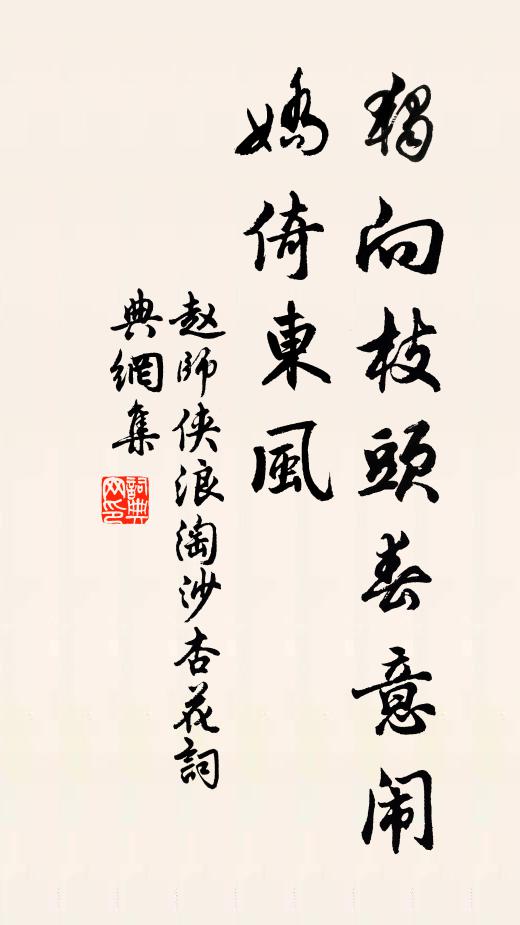 獨向枝頭春意闹
嬌倚東風
赵師侠浪淘沙杏花詞
典網集
詞典
网印